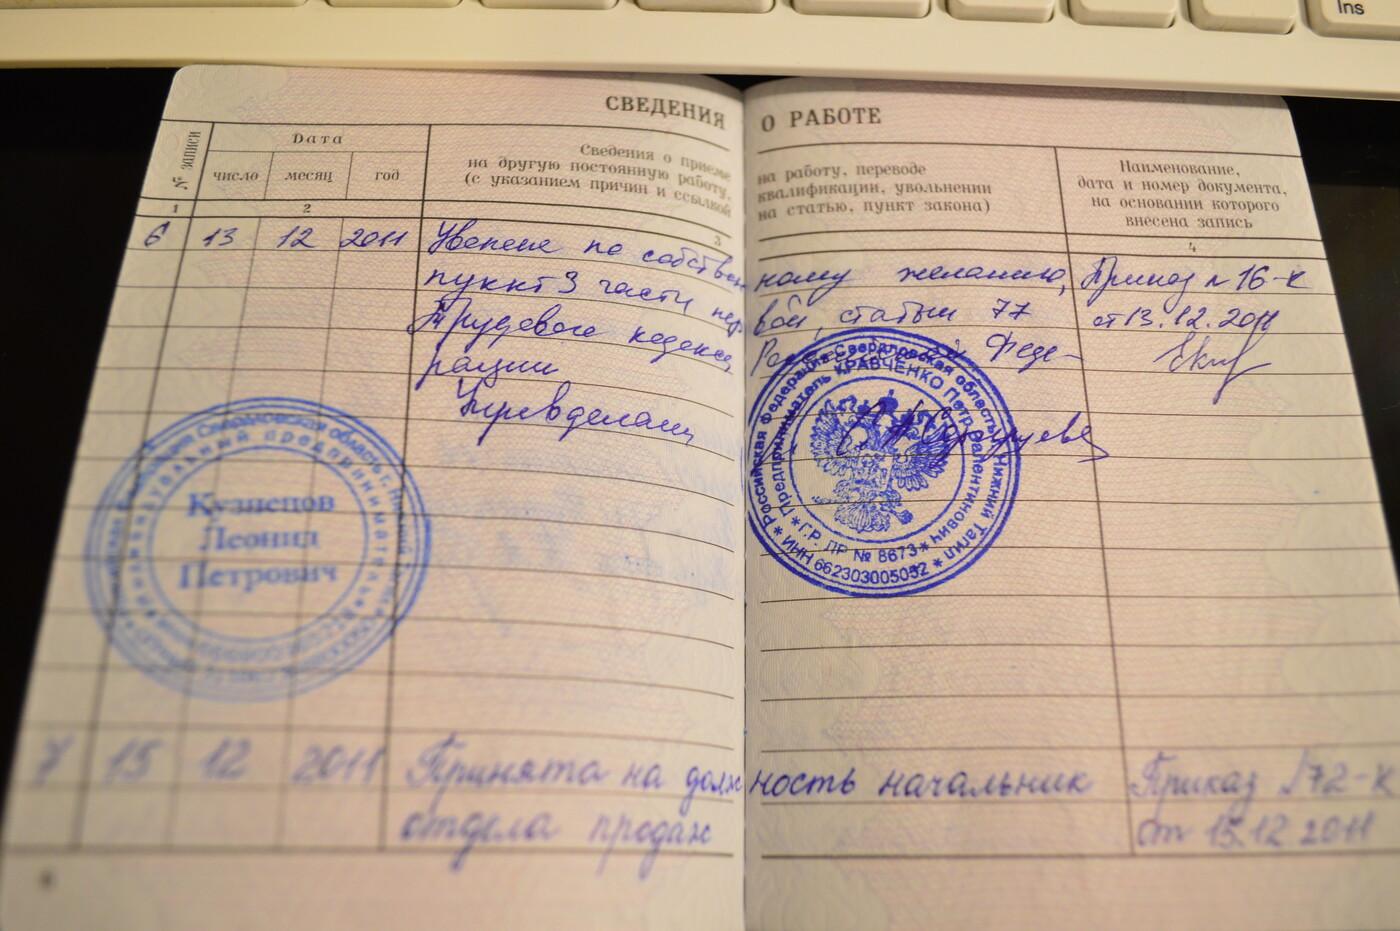 Ins
СВЕДЕНИЯ О РАБОТЕ
№ записи
Дата
число месяц год
Сведения о приеме на работу, переводе
на другую постоянную работу, квалификации, увольнении
(с указанием причин и ссылкой на статью, пункт закона)
Наименование,
дата и номер документа,
на основании которого
внесена запись
1 2 3 4
6 13 12 2011 по собственному желанию, Приказ № 16-к
пункт 3 части первой, статьи 77 от 13.12.2011
Трудового кодекса Феде-
рации
Российская Федерация Свердловская область г. Нижний Тагил
Предприниматель КРАВЧЕНКО Петр Валентинович
Г.Р. ПР № 8673
ИНН 662303005052
Свердловская область г. Нижний
индивидуальный предприниматель
Кузнецов
Леонид
Петрович
7 15 12 2011 Принята на должность начальник Приказ №72-к
отдела продаж от 15.12.2011